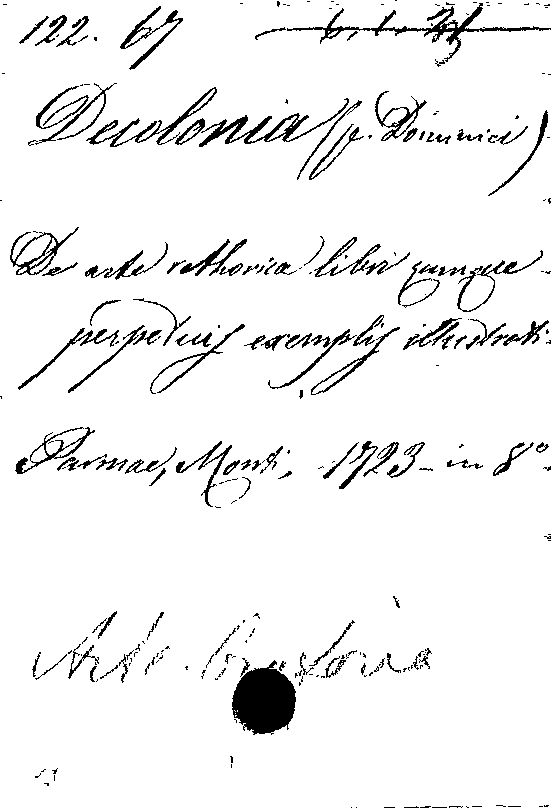 122. 67 6. 1.
Decolonia (p. Dominici)
De arte rethorica libri qumque
perpetuis exemplis illustrati.
Parmae, Monti, 1723 - in 8°.
Arte Oratoria